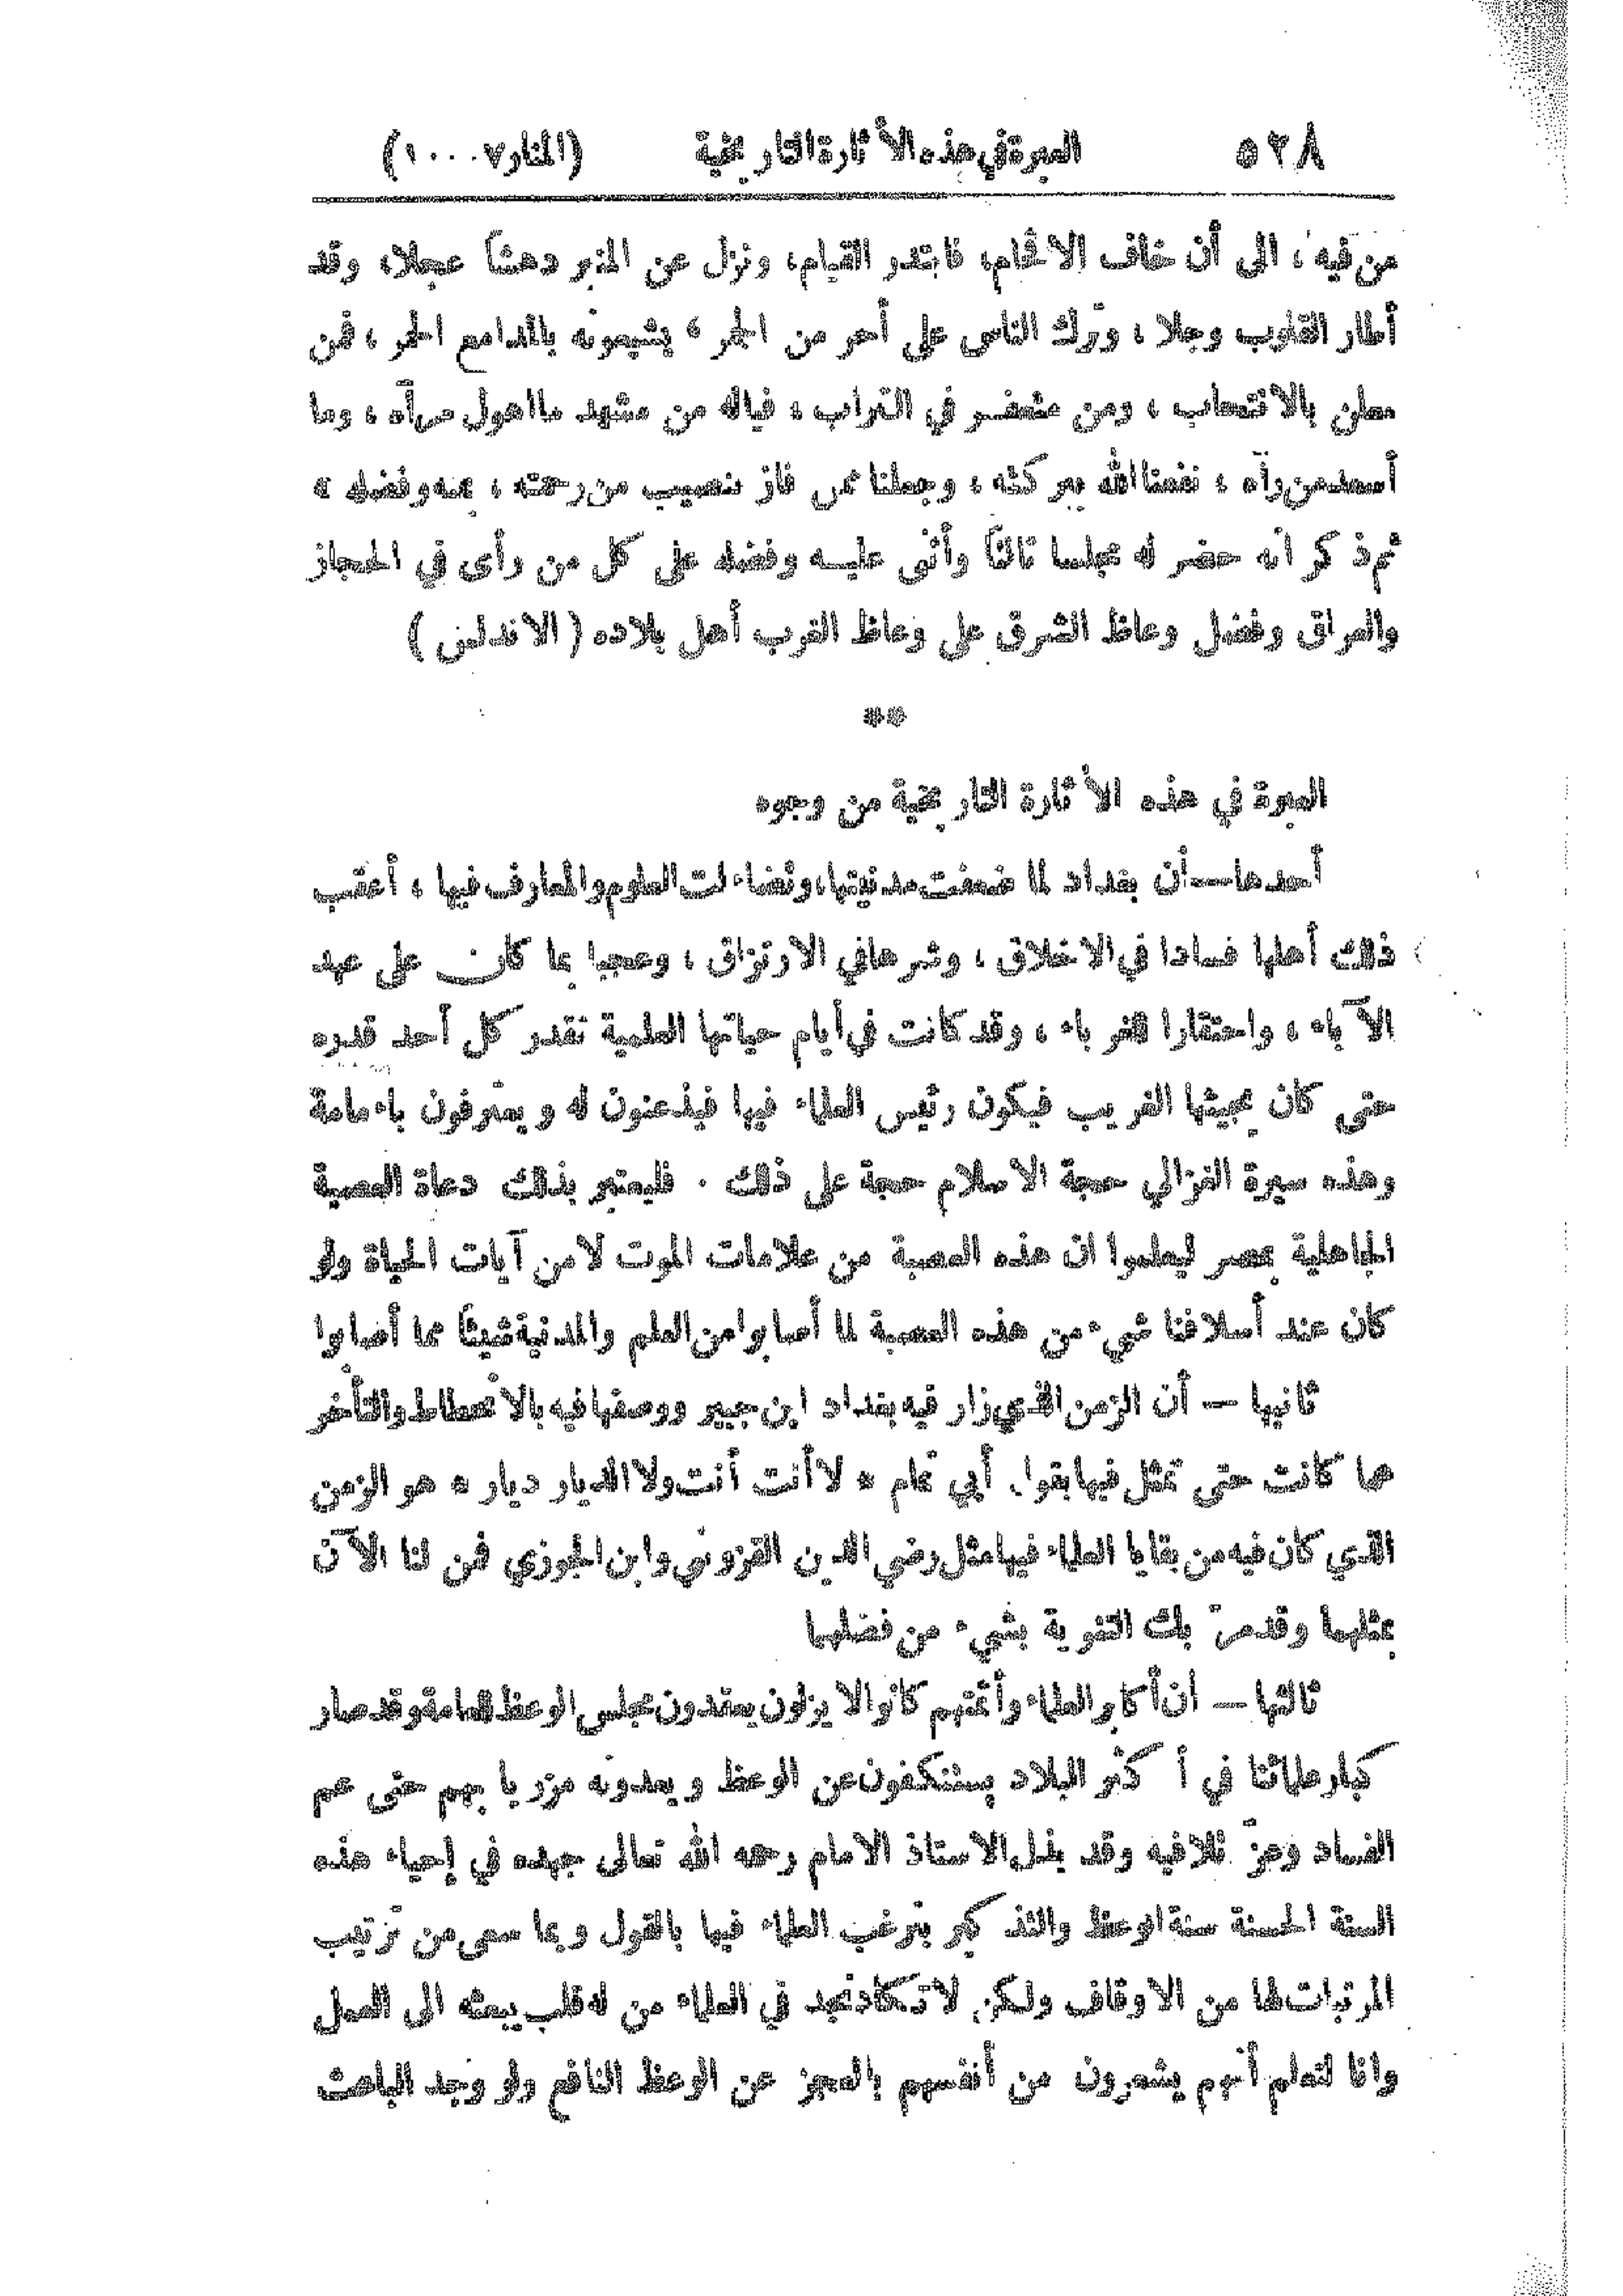 ٥٢٨ العبرة في هذه الأثارة التاريخية (المنار ٧ . . . ١٠)
من فيه ، الى أن خاف الافحام، فابتدر القيام، ونزل عن المنبر دهشاً عجلا، وقد
أطار القلوب وجلا ، وترك الناس على أحر من الجمر ، يشيعونه بالمدامع الحمر ، فمن
معلن بالانتحاب ، ومن متعفر في التراب ، فياله من مشهد ما اهول مرآه ، وما
أسعد من رآه ، نفعنا الله ببركته ، وجعلنا ممن فاز بنصيب من رحمته ، بمنه وفضله »
ثم ذكر انه حضر له مجلسا ثالثاً وأثنى عليه وفضله على كل من رأى في الحجاز
والعراق وفضل وعاظ الشرق على وعاظ الغرب أهل بلاده ( الاندلس )
**
العبرة في هذه الأثارة التاريخية من وجوه
أحدها — أن بغداد لما ضعفت مدنيتها، وتضاءلت العلوم والمعارف فيها ، أعقب
ذلك أهلها فسادا في الاخلاق ، وشرها في الارتزاق ، وعجبا بما كان على عهد
الآباء ، واحتقارا للغرباء ، وقد كانت في أيام حياتها العلمية تقدر كل أحد قدره
حتى كان يجيئها الغريب فيكون رئيس العلماء فيها فيذعنون له ويعترفون باءمامة
وهذه سيرة الغزالي حجة الاسلام حجة على ذلك . فليعتبر بذلك دعاة العصبية
الجاهلية بمصر ليعلموا ان هذه العصبة من علامات الموت لا من آيات الحياة ولو
كان عند أسلافنا شيء من هذه العصبة لما أصابوا من العلم والمدنية شيئاً مما أصابوا
ثانيها — أن الزمن الذي زار فيه بغداد ابن جبير ووصفها فيه بالانحطاط والتأخر
عما كانت حتى تمثل فيها بقول أبي تمام * لا أنت أنت ولا الديار ديار * هو الزمن
الذي كان فيه من بقايا العلماء فيها مثل رضي الدين القزويني وابن الجوزي فمن لنا الآن
بمثلهما وقد مرّ بك التنويه بشيء من فضلهما
ثالثها — أن أكابر العلماء وأئمتهم كانوا لا يزلون يعقدون مجلس الوعظ للعامة وقد صار
كبار علمائنا في أكثر البلاد يستنكفون عن الوعظ ويعدونه مزريا بهم حتى عم
الفساد وعزّ تلافيه وقد بذل الاستاذ الامام رحمه الله تعالى جهده في إحياء هذه
السنة الحسنة سنة الوعظ والتذكير بترغيب العلماء فيها بالقول وبما سعى من ترتيب
المرتبات لها من الاوقاف ولكن لا تكاد تجد في العلماء من له قلب يبعثه الى العمل
وانا لنعلم أنهم يشعرون من أنفسهم بالعجز عن الوعظ النافع ولو وجد الباعث